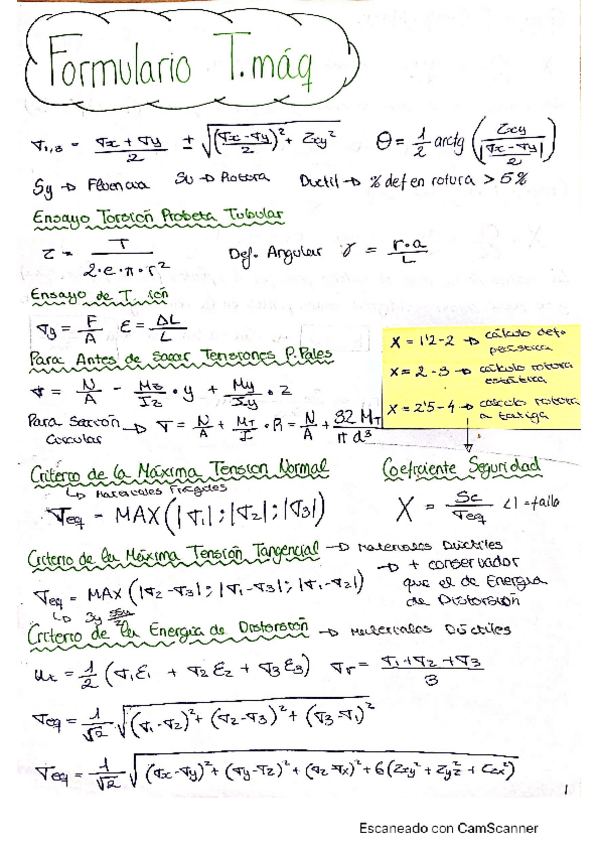 Formulario T.máq
σ1,3 = (σx + σy)/2 ± √((σx - σy)/2)² + τxy² θ = 1/2 arctg (τxy / (|σx - σy|/2))
Sy → Fluencia Su → Rotura Ductil → % def en rotura > 5%
Ensayo Torsión Probeta Tubular
τ = T / (2·e·π·r²) Def. Angular γ = r·a / L
Ensayo de T. ión
σy = F/A ε = ΔL/L
Para Antes de sacar Tensiones P.Pales
σ = N/A - Mz/Iz · y + My/Iy · z
Para sección circular → σ = N/A + MT/I · R = N/A + 32 MT / π d³
X = 1'2-2 → cálculo def.
X = 2-3 → cálculo rotura estática
X = 2'5-4 → cálculo rotura a fatiga
Criterio de la Máxima Tensión Normal
↳ Materiales Frágiles
σeq = MAX(|σ1|;|σ2|;|σ3|)
Coeficiente Seguridad
X = Sc / σeq <1 = fallo
Criterio de la Máxima Tensión Tangencial → Materiales Dúctiles
→ + conservador que el de Energía de Distorsión
σeq = MAX (|σ2-σ3|; |σ1-σ3|; |σ1-σ2|)
Criterio de la Energía de Distorsión → Materiales Dúctiles
ut = 1/2 (σ1ε1 + σ2ε2 + σ3ε3) σr = (σ1+σ2+σ3)/3
σeq = 1/√2 √(σ1-σ2)² + (σ2-σ3)² + (σ3-σ1)²
σeq = 1/√2 √(σx-σy)² + (σy-σz)² + (σz-σx)² + 6(τxy² + τyz² + τzx²)
1
Escaneado con CamScanner